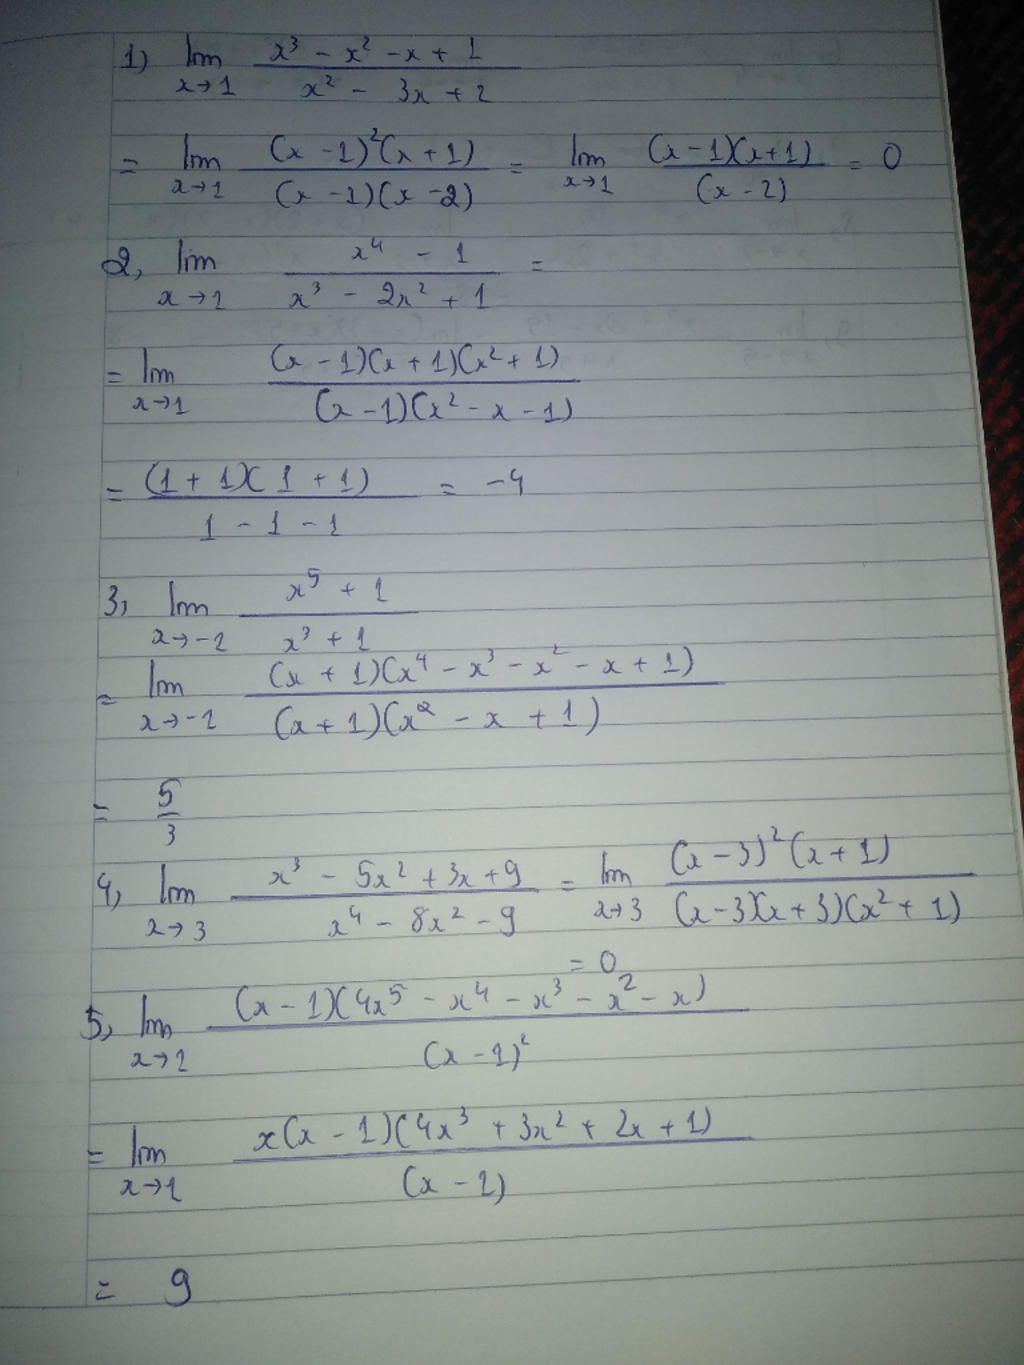 1) lim x→1 (x³ - x² - x + 1)/(x² - 3x + 2)
= lim x→1 ((x - 1)²(x + 1))/((x - 1)(x - 2)) = lim x→1 ((x - 1)(x + 1))/(x - 2) = 0
2, lim x→1 (x⁴ - 1)/(x³ - 2x² + 1) =
= lim x→1 ((x - 1)(x + 1)(x² + 1))/((x - 1)(x² - x - 1))
= ((1 + 1)(1 + 1))/(1 - 1 - 1) = -4
3, lim x→-1 (x⁵ + 1)/(x³ + 1)
= lim x→-1 ((x + 1)(x⁴ - x³ - x² - x + 1))/((x + 1)(x² - x + 1))
= 5/3
4, lim x→3 (x³ - 5x² + 3x + 9)/(x⁴ - 8x² - 9) = lim x→3 ((x - 3)²(x + 1))/((x - 3)(x + 3)(x² + 1))
= 0
5, lim x→1 ((x - 1)(4x⁵ - x⁴ - x³ - x² - x))/((x - 1)²)
= lim x→1 (x(x - 1)(4x³ + 3x² + 2x + 1))/((x - 1))
= 9